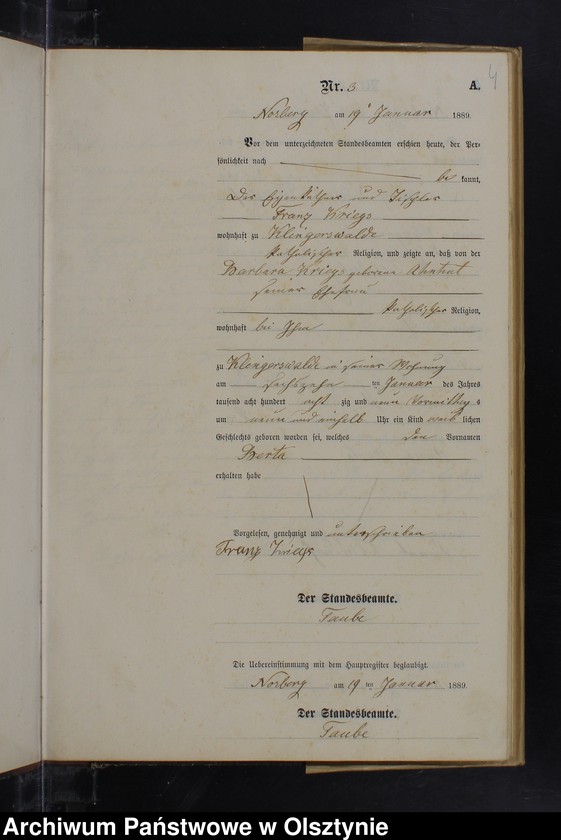 4
Nr. 3 A.
Norberg am 19t Januar 1889.
Vor dem unterzeichneten Standesbeamten erschien heute, der Per-
sönlichkeit nach
be kannt,
Der Eigenkäthner und Tischler
Franz Kriegs
wohnhaft zu Klingerswalde
katholischer Religion, und zeigte an, daß von der
Barbara Kriegs geborene
seiner Ehefrau
katholischer Religion,
wohnhaft bei Ihm
zu Klingerswalde in seiner Wohnung
am sechszehn ten Januar des Jahres
tausend acht hundert acht zig und neun Vormittag s
um neun und einhalb Uhr ein Kind weib lichen
Geschlechts geboren worden sei, welches den Vornamen
Berta
erhalten habe
Vorgelesen, genehmigt und unterschrieben
Franz Kriegs
Der Standesbeamte.
Taube
Die Uebereinstimmung mit dem Hauptregister beglaubigt.
Norberg am 19 ten Januar 1889.
Der Standesbeamte.
Taube
Archiwum Państwowe w Olsztynie